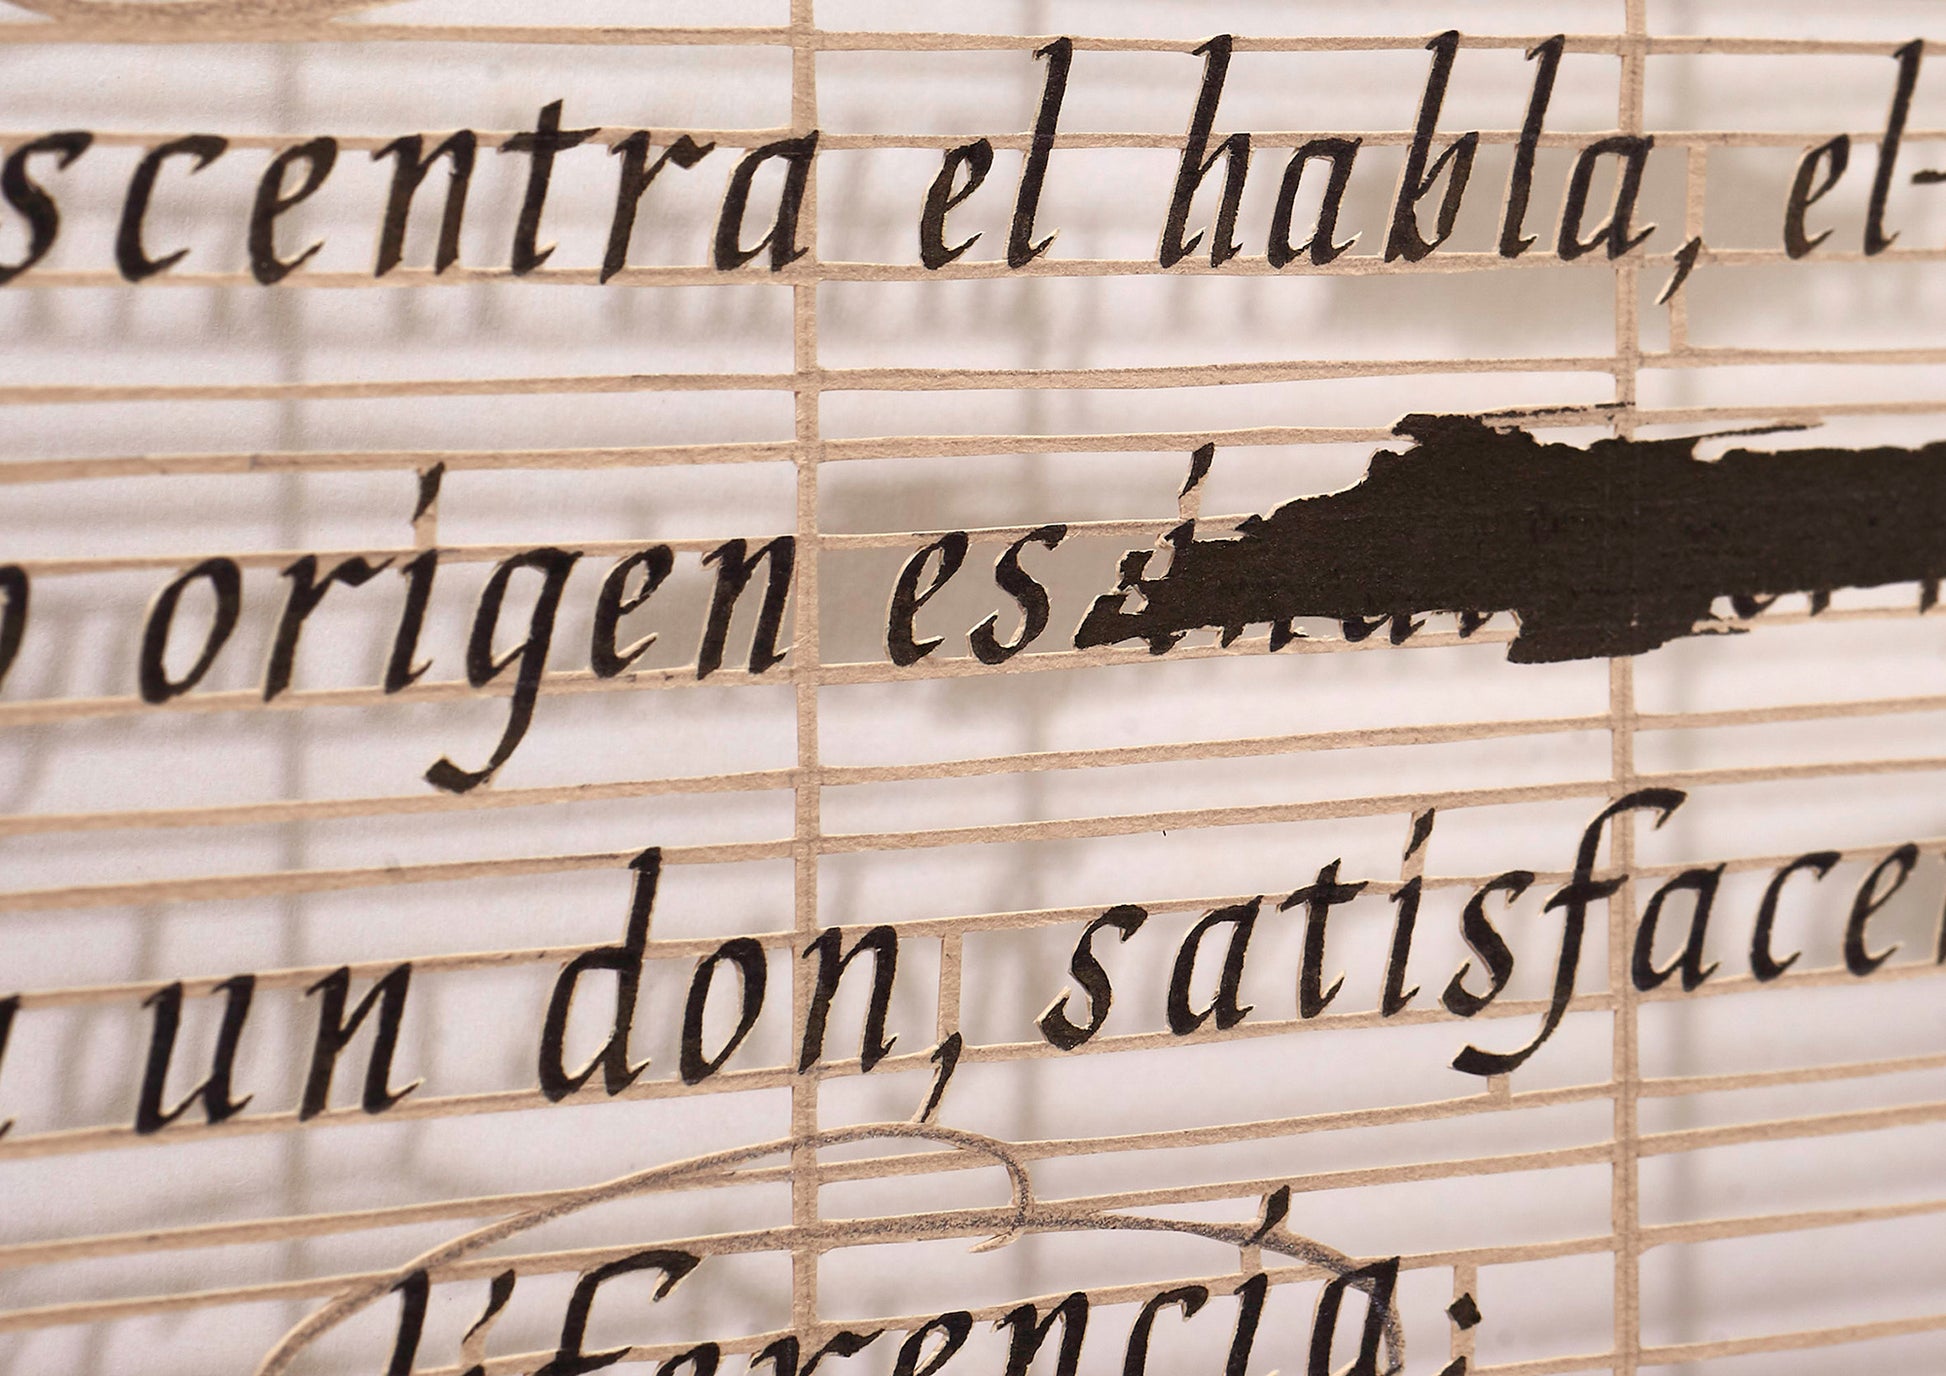 scentra el habla, el-
origen es
un don, satisfacer
diferencia;